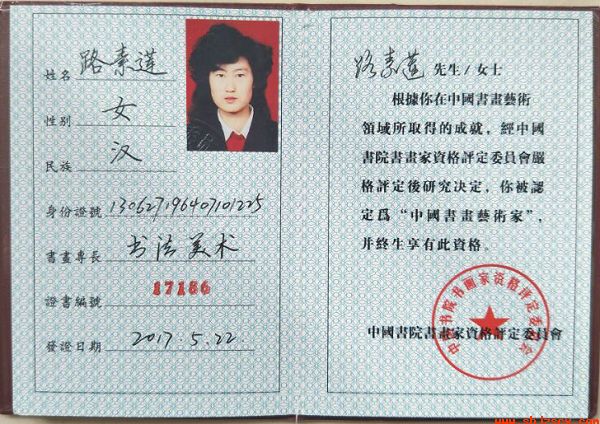 姓名 路素莲
性别 女
民族 汉
身份證號 130627196407101225
書畫專長 书法美术
證書編號 17186
發證日期 2017.5.22
路素莲 先生/女士
根據你在中國書畫藝術
領域所取得的成就，經中國
書院書畫家資格評定委員會嚴
格評定後研究決定，你被認
定爲“中國書畫藝術家”，
并終生享有此資格。
中国书院书画家资格评定委员会
中國書院書畫家資格評定委員會